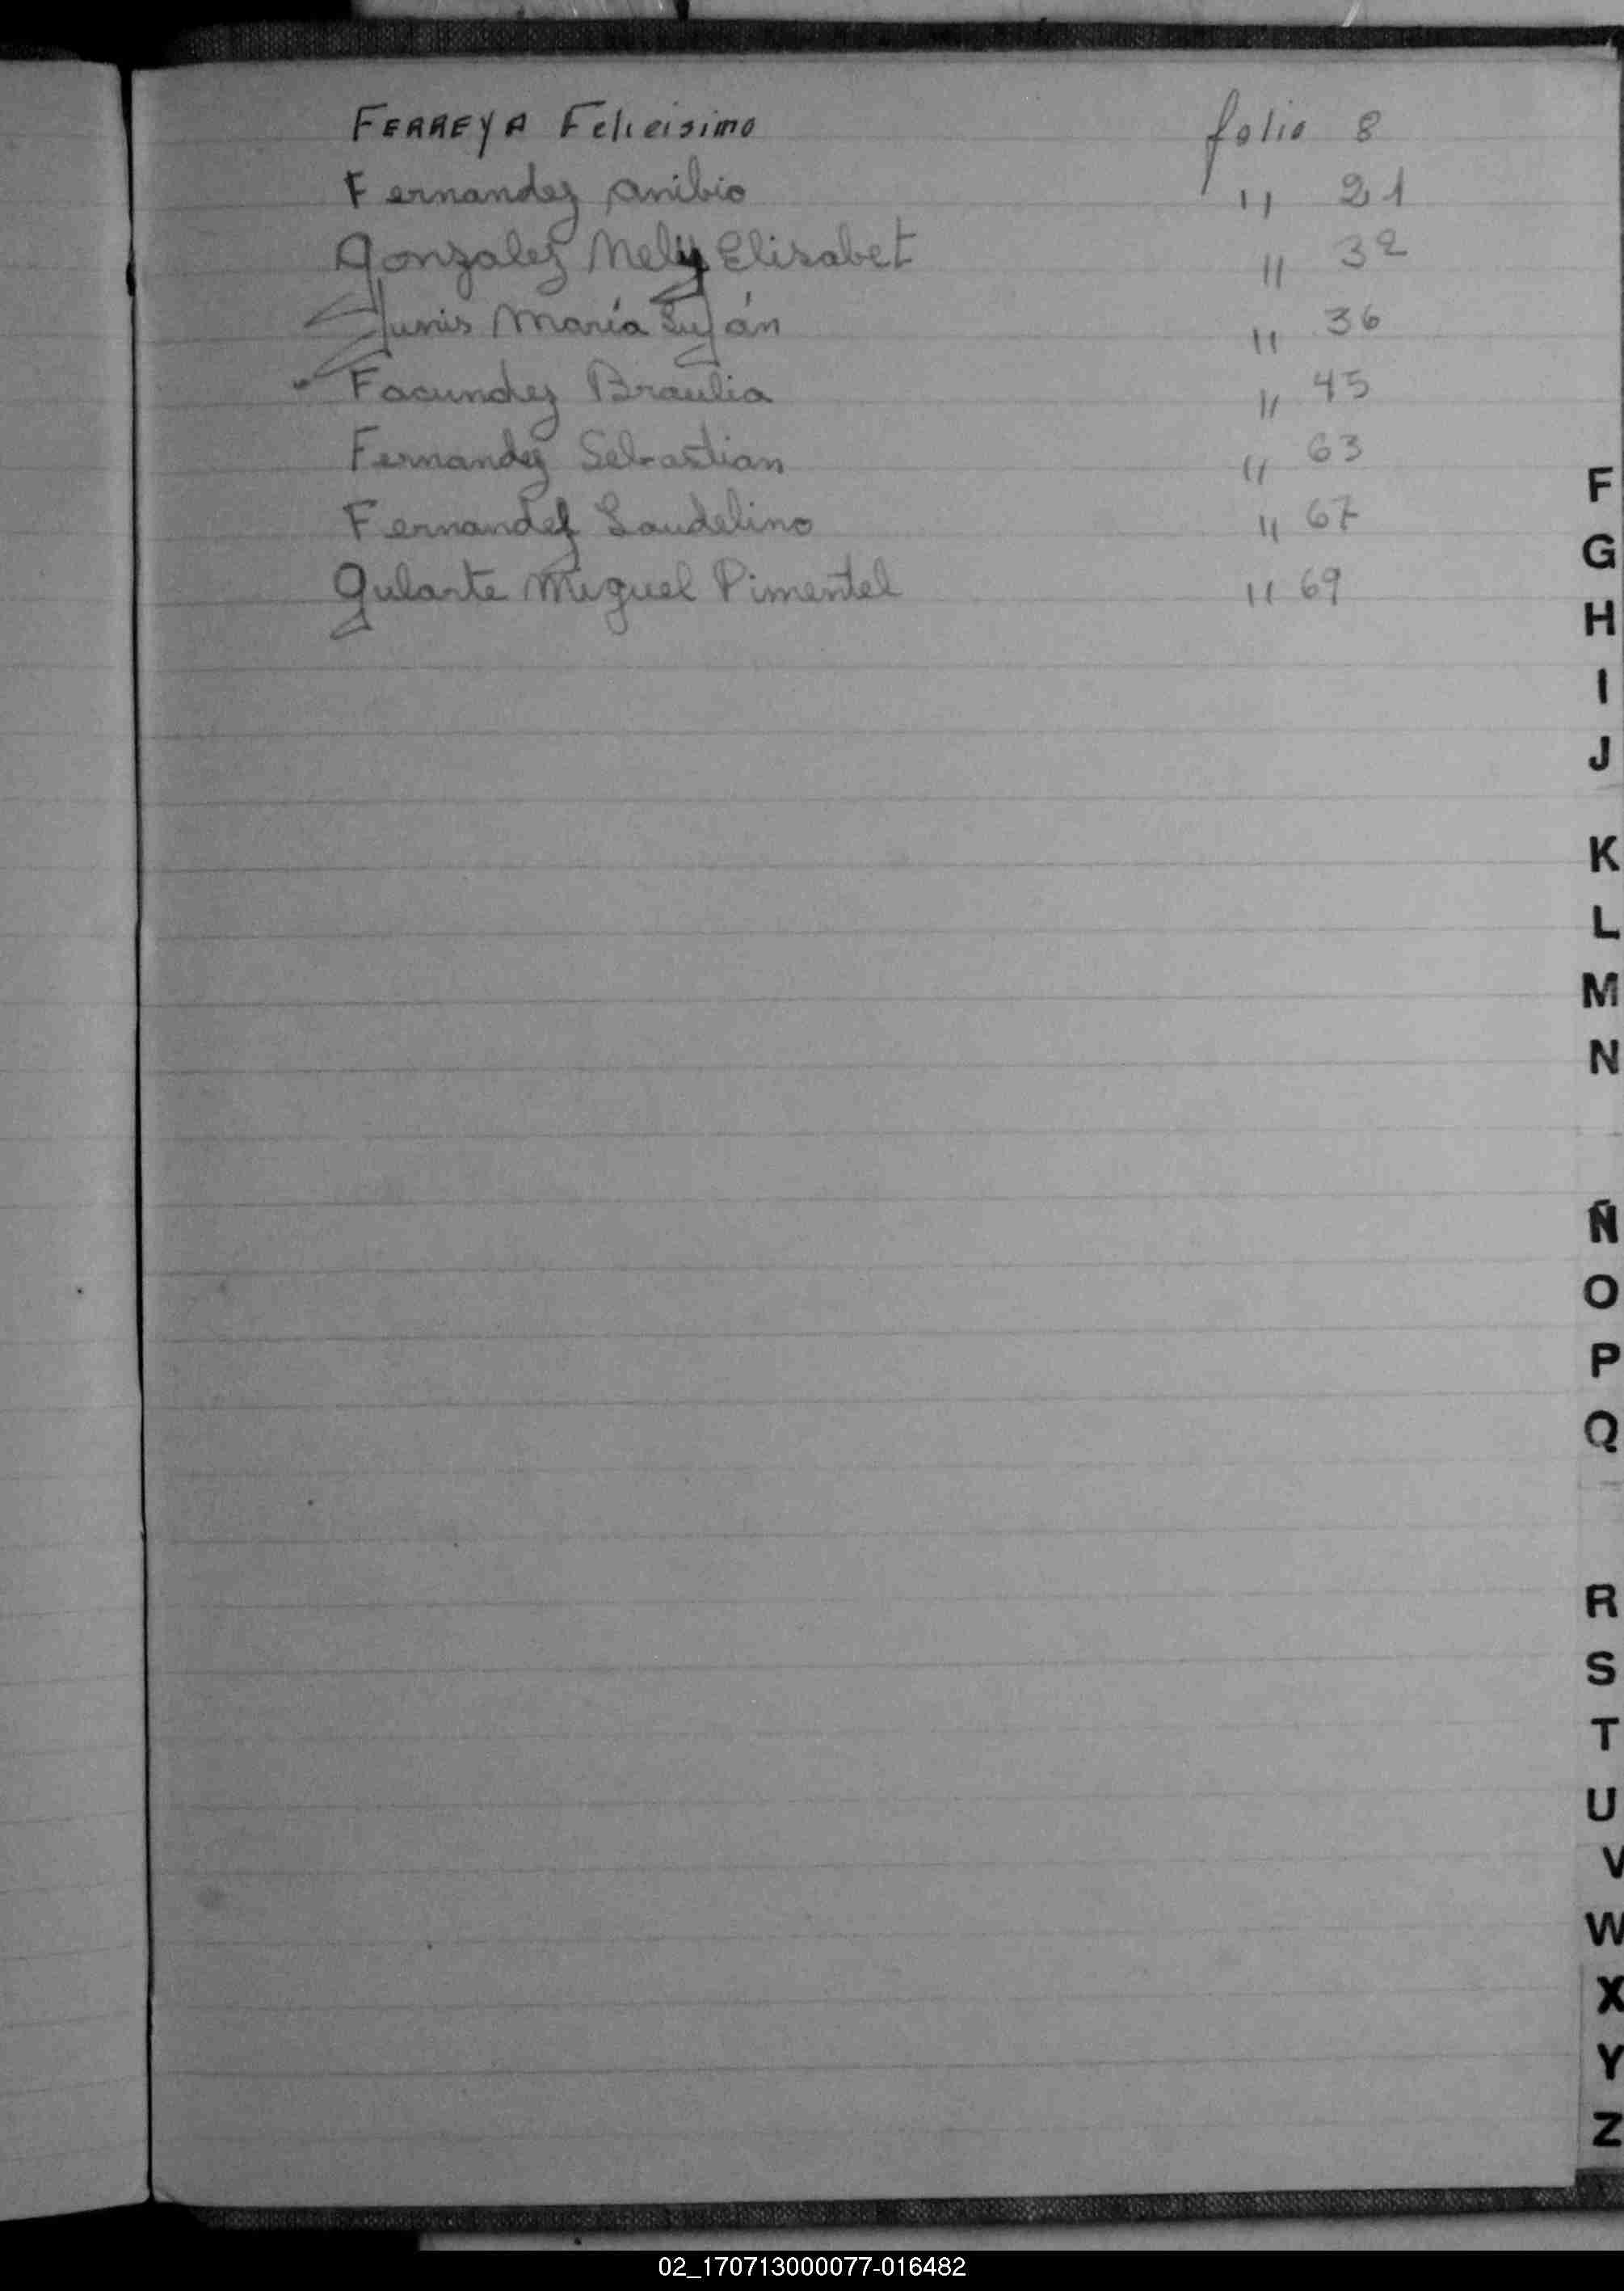 FERREYA Felicisimo folio 8
Fernandez Anibio " 21
Gonzalez Nely Elisabet " 32
Yunis María Luján " 36
Facundez Braulia " 45
Fernandez Sebastian " 63
Fernandez Laudelino " 67
Gularte Miguel Pimentel " 69
F
G
H
I
J
K
L
M
N
Ñ
O
P
Q
R
S
T
U
V
W
X
Y
Z
02_170713000077-016482